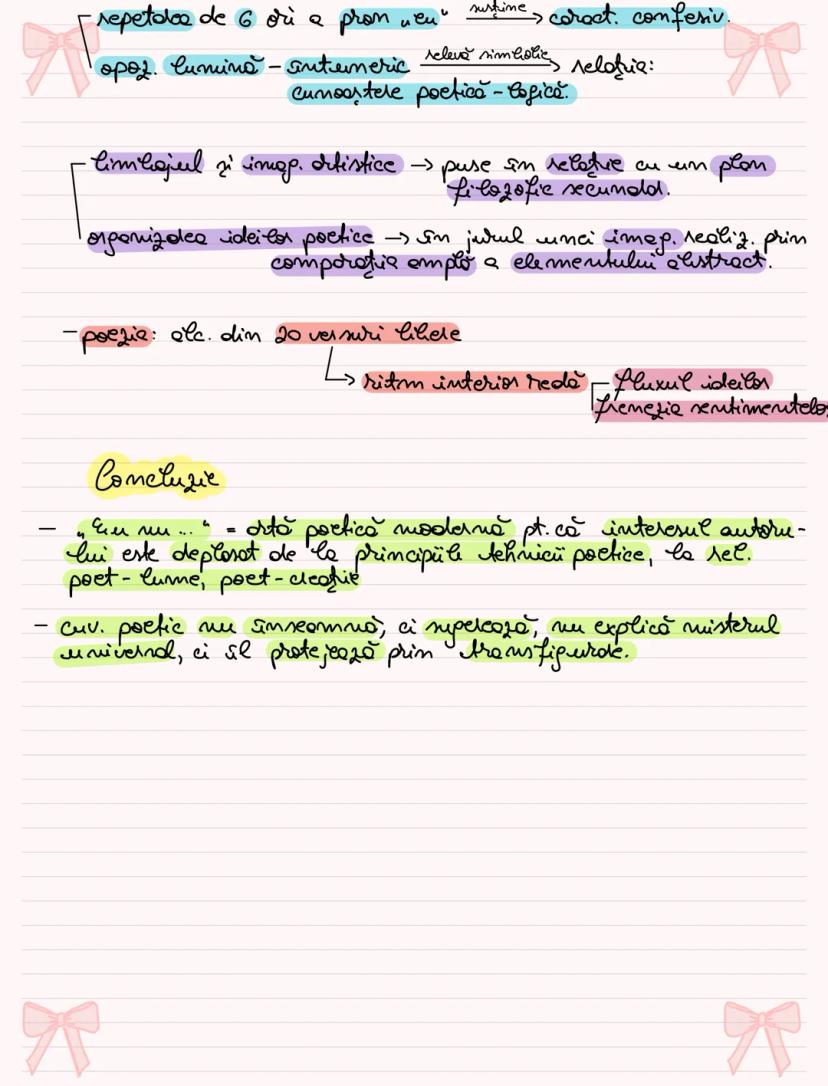 repetarea de 6 ori a pron „eu“ susține → caract. confesiv.
opoz. lumină - întuneric relevă simbolic → relația:
cunoaștere poetică - logică.
limbajul și imag. artistice → puse în relație cu un plan
filozofic secundar.
organizarea ideilor poetice → în jurul unei imag. realiz. prin
comparația amplă a elementului abstract.
- poezia: alc. din 20 versuri libere
→ ritm interior redă fluxul ideilor
frenezia sentimentelor
Concluzie
- „Eu nu ...“ = artă poetică modernă pt. că interesul autoru-
lui este deplasat de la principiile tehnicii poetice, la rel.
poet - lume, poet - creație
- cuv. poetic nu înseamnă, ci sugerează, nu explică misterul
universal, ci îl protejează prin transfigurare.